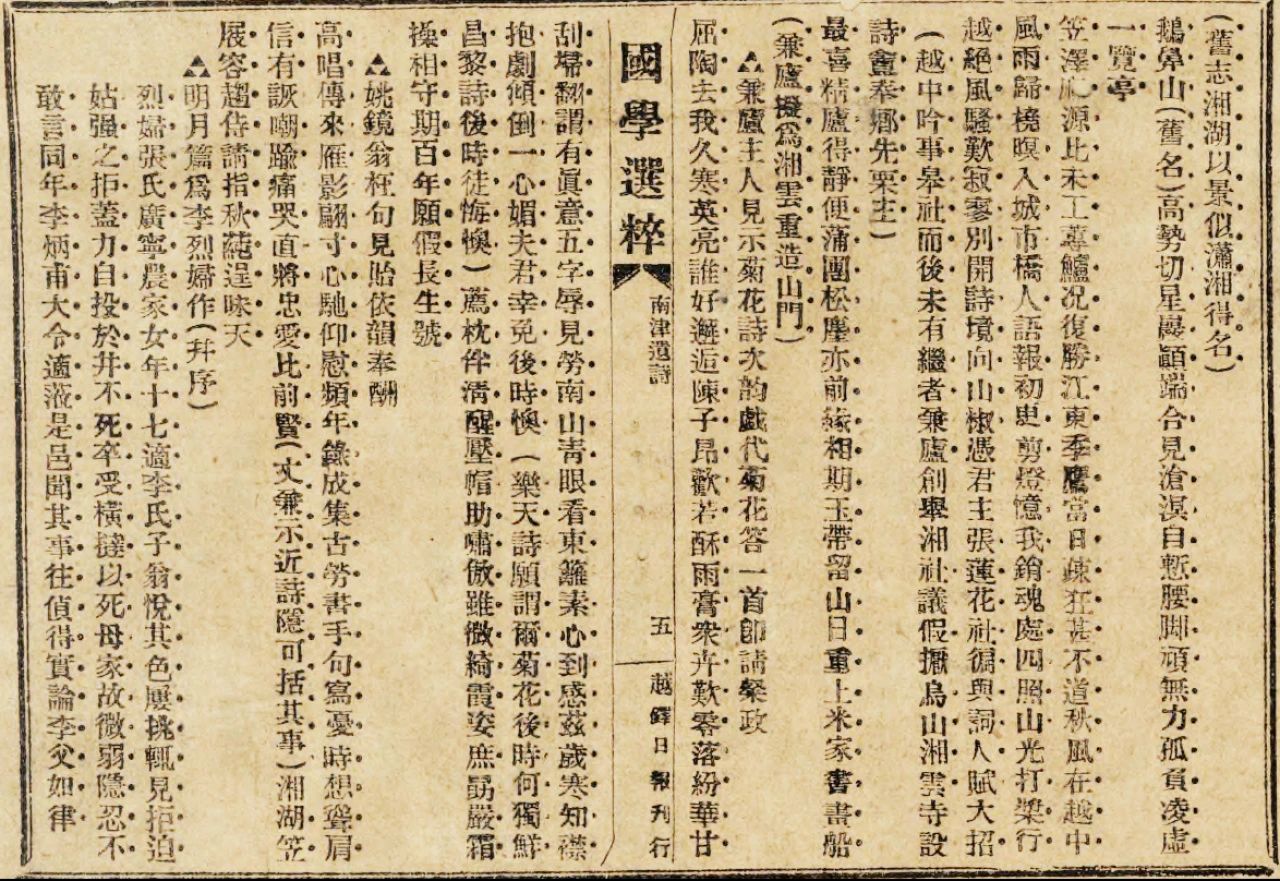 (舊志湘湖以景似瀟湘得名)
鵝鼻山(舊名)高勢切星巖顧端合見滄溟自慙腰脚頑無力孤負凌虛
一覽亭
笠澤 源比未工蓴鱸况復勝江東季鷹當日疎狂甚不道秋風在越中
風雨歸橈暝入城市橋人語報初更剪燈憶我銷魂處四照山光打槳行
越絕風騷歎寂寥別開詩境向山椒憑君主張蓮花社徧與詞人賦大招
(越中吟事皋社而後未有繼者兼廬創舉湘社議假 烏山湘雲寺設
詩龕奉鄉先栗主)
最喜精廬得靜便蒲團松麈亦前緣相期玉帶留山日重上米家書畫船
(兼廬擬爲湘雲重造山門)
▲兼廬主人見示菊花詩次韵戲代菊花答一首卽請粲政
屈陶去我久寒英亮誰好邂逅陳子昂歡若酥雨膏衆卉歎零落紛華甘
國學選粹
南津遺詩
五
越鐸日報刊行
刮埽翻謂有眞意五字辱見勞南山靑眼看東籬素心到感茲歲寒知襟
抱劇傾倒一心媚夫君幸免後時懊(樂天詩願謂爾菊花後時何獨鮮
昌黎詩後時徒悔懊)薦枕伴淸醒壓帽助嘯傲雖微綺霞姿庶勗嚴霜
操相守期百年願假長生號
▲姚鏡翁枉句見貽依韻奉酬
高唱傳來雁影翩寸心馳仰慰頻年錄成集古勞書手句寫憂時想聳肩
信有詼嘲踰痛哭直將忠愛比前賢(丈兼示近詩隱可括其事)湘湖笠
屐容趨侍請指秋蒓逞味天
▲明月篇爲李烈婦作(幷序)
烈婦張氏廣寧農家女年十七適李氏子翁悅其色屢挑輒見拒迫
姑强之拒益力自投於井不死卒受橫撻以死母家故微弱隱忍不
敢言同年李炳甫大令適涖是邑聞其事往偵得實論李父如律